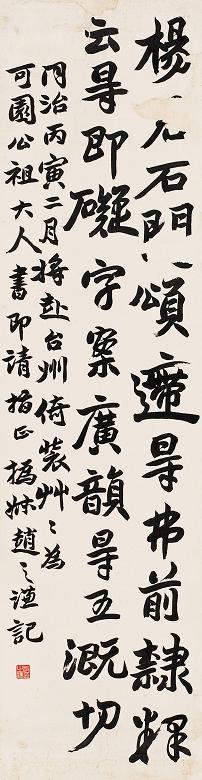 楊君石門頌遰㝵弗前隸釋
云㝵即礙字案廣韻㝵五溉切
同治丙寅二月將赴台州倚裝艸〻為
可園公祖大人書即請指正撝叔趙之謙記